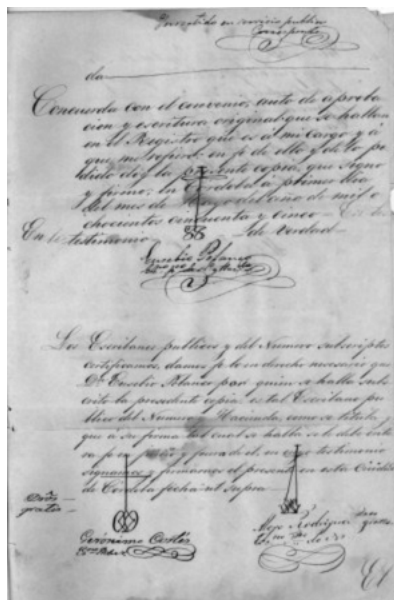 Invertido en servicio publico
Corresponde
da
Concuerda con el convenio, auto de aproba
cion y escritura original que se hallan
en el Registro que es á mi cargo y á
que me refiero: en fe de ello y de lo pe
dido doy la presente copia, que signo
y firmo; En Córdoba á primer dia
del mes de Mayo del año de mil o
chocientos cincuenta y cinco
En testimonio de Verdad
Eusebio Polanco
Los Escribanos publicos y del Número subscriptos
certificamos, damos fe en derecho necesario que
Dn. Eusebio Polanco por quien se halla subs
crita la precedente copia, es tal Escribano pu
blico del Número y Hacienda, como se titula,
que á su firma tal cual se halla se le debe ente
ra fe en y fuera de el, en cuyo testimonio
signamos y firmamos el presente en esta Ciudad
de Córdoba fecha ut supra
Dros.
gratis
Geronimo Cortés
Rodriguez